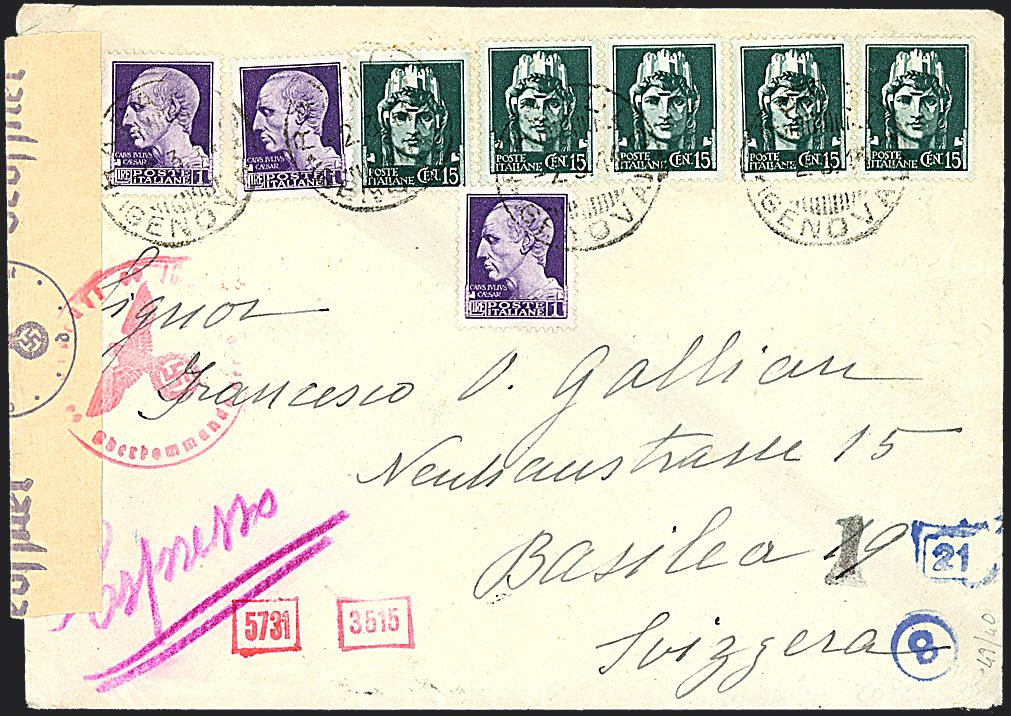 CAIVS IVLIVS
CAESAR
LIRE POSTE ITALIANE 1
CAIVS IVLIVS
CAESAR
LIRE POSTE ITALIANE 1
POSTE ITALIANE CEN. 15
POSTE ITALIANE CEN. 15
POSTE ITALIANE CEN. 15
POSTE ITALIANE CEN. 15
POSTE ITALIANE CEN. 15
GENOVA
GENOVA
GENOVA
CAIVS IVLIVS
CAESAR
LIRE POSTE ITALIANE 1
Geöffnet
Signor
Francesco O. Gallian
Oberkommand
Neuhausstrasse 15
Espresso
Basilea 19
1
21
5731
3515
Svizzera
8
49/40